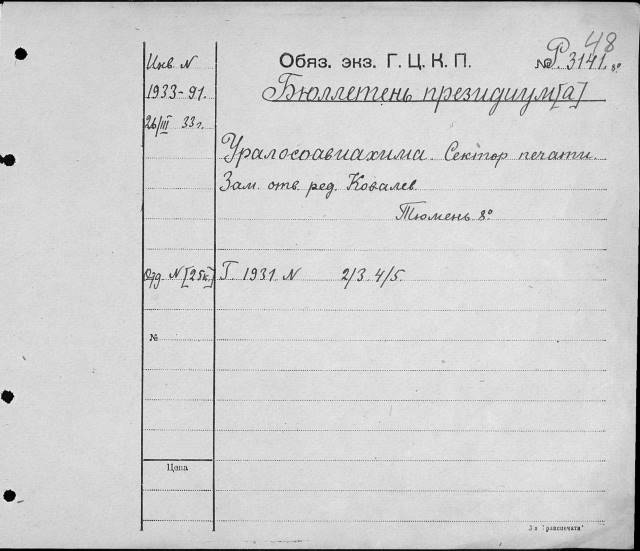 48
Инв. N
Обяз. экз. Г. Ц. К. П.
№ Р. 3141. 8°
1933-91.
Бюллетень президиум[а]
26/III 33 г.
Уралосоавиахима. Сектор печати.
Зам. отв. ред. Ковалев
Тюмень 8°
Отд. N [25к.]
Г. 1931 N 2/3. 4/5.
№
Цена